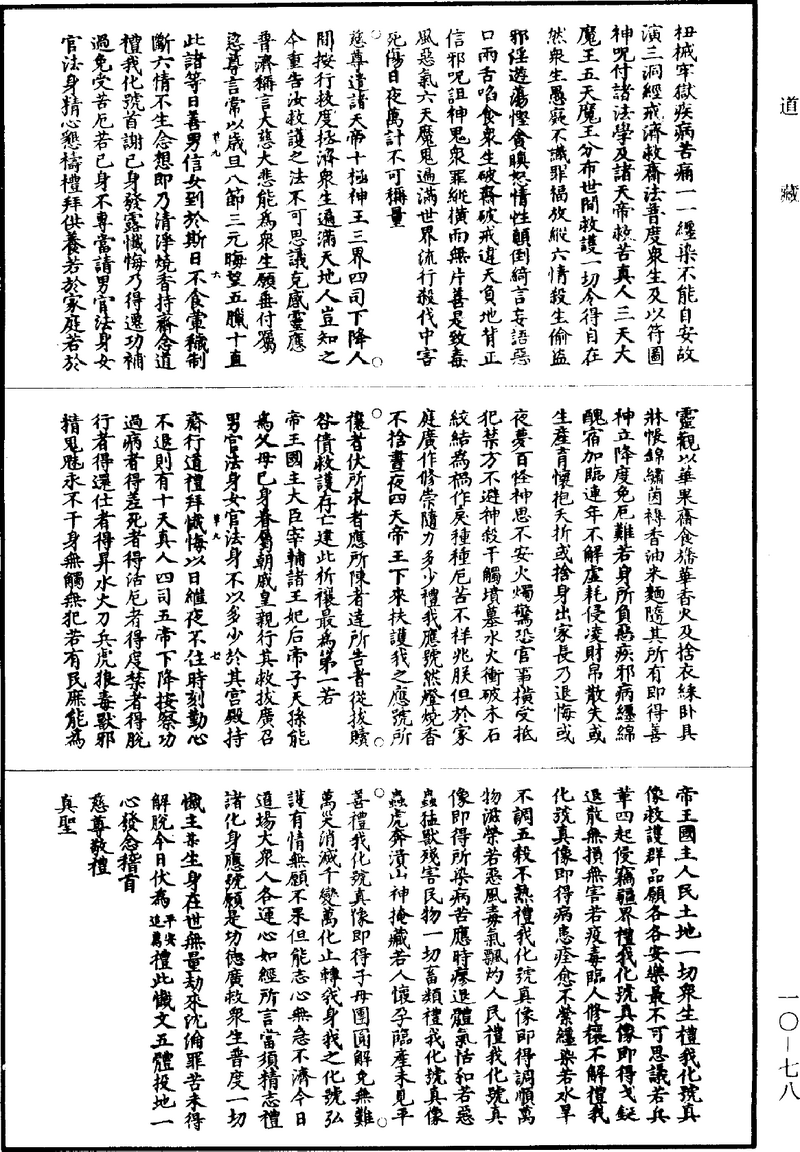 道藏
杻械牢獄疾病苦痛一一纏染不能自安故
演三洞經戒濟救齋法普度衆生及以符圖
神呪付諸法學及諸天帝救苦真人三天大
魔王五天魔王分布世間救護一切令得自在
然衆生愚癡不識罪福放縱六情殺生偷盜
邪淫遊蕩慳貪瞋怒情性顛倒綺言妄語惡
口兩舌啗食衆生破齋破戒違天負地背正
信邪呪詛神鬼衆罪縱橫而無片善是致毒
風惡氣六天魔鬼遍滿世界流行殺伐中害
死傷日夜萬計不可稱量
慈尊遣諸天帝十極神王三界四司下降人
間按行救度拯濟衆生遍滿天地人豈知之
今重告汝救護之法不可思議克感靈應
普濟稱言大慈大悲能爲衆生願垂付囑
慈尊言常以歲旦八節三元晦望五臘十直
此諸等日善男信女到於斯日不食葷穢制
斷六情不生念想即乃清淨燒香持齋念道
禮我化號首謝已身發露懺悔乃得遷功補
過免受苦厄若已身不專當請男官法身女
官法身精心懇禱禮拜供養若於家庭若於
靈觀以華果齋食旛華香火及捨衣緣卧具
牀帳錦繡茵褥香油米麵隨其所有即得善
神立降度免厄難若身所負惡疾邪病纏綿
醜宿加臨連年不解虛耗侵凌財帛散失或
生產育懷抱夭折或捨身出家長乃退悔或
夜夢百怪神思不安火燭驚恐官事橫受抵
犯禁方不避神殺干觸墳墓水火衝破木石
絞結爲禍作灾種種厄苦不祥兆朕但於家
庭廣作修崇隨力多少禮我應號然燈燒香
不捨晝夜四天帝王下來扶護我之應號所
禳者伏所求者應所陳者達所告者從拔贖
咎債救護存亡建此祈禳最爲第一若
帝王國主大臣宰輔諸王妃后帝子天孫能
爲父母已身眷屬朝戚皇親行其救拔廣召
男官法身女官法身不以多少於其宮殿持
齋行道禮拜懺悔以日繼夜不住時刻勤心
不退則有十天真人四司五帝下降按察功
過病者得差死者得活厄者得度禁者得脫
行者得還仕者得昇水火刀兵虎狼毒獸邪
精鬼魅永不干身無觸無犯若有民庶能爲
帝王國主人民土地一切衆生禮我化號真
像救護群品願各各安樂最不可思議若兵
革四起侵竊疆界禮我化號真像即得戈鋋
退散無損無害若疫毒臨人修禳不解禮我
化號真像即得病患痊愈不縈纏染若水旱
不調五穀不熟禮我化號真像即得調順萬
物滋榮若惡風毒氣飄灼人民禮我化號真
像即得所染病苦應時瘳退體氣恬和若惡
蟲猛獸殘害民物一切畜類禮我化號真像
蟲虎奔潰山神掩藏若人懷孕臨產未見平
善禮我化號真像即得子母團圓解免無難
萬灾消滅千變萬化止轉我身我之化號弘
護有情無願不果但能志心無急不濟今日
道場大衆人各運心如經所言當須精志禮
諸化身應號願是功德廣救衆生普度一切
懺主某生身在世無量劫來沈淪罪苦未得
解脫今日伏爲平安追薦禮此懺文五體投地一
心發念稽首
慈尊敬禮
真聖
一〇—七八